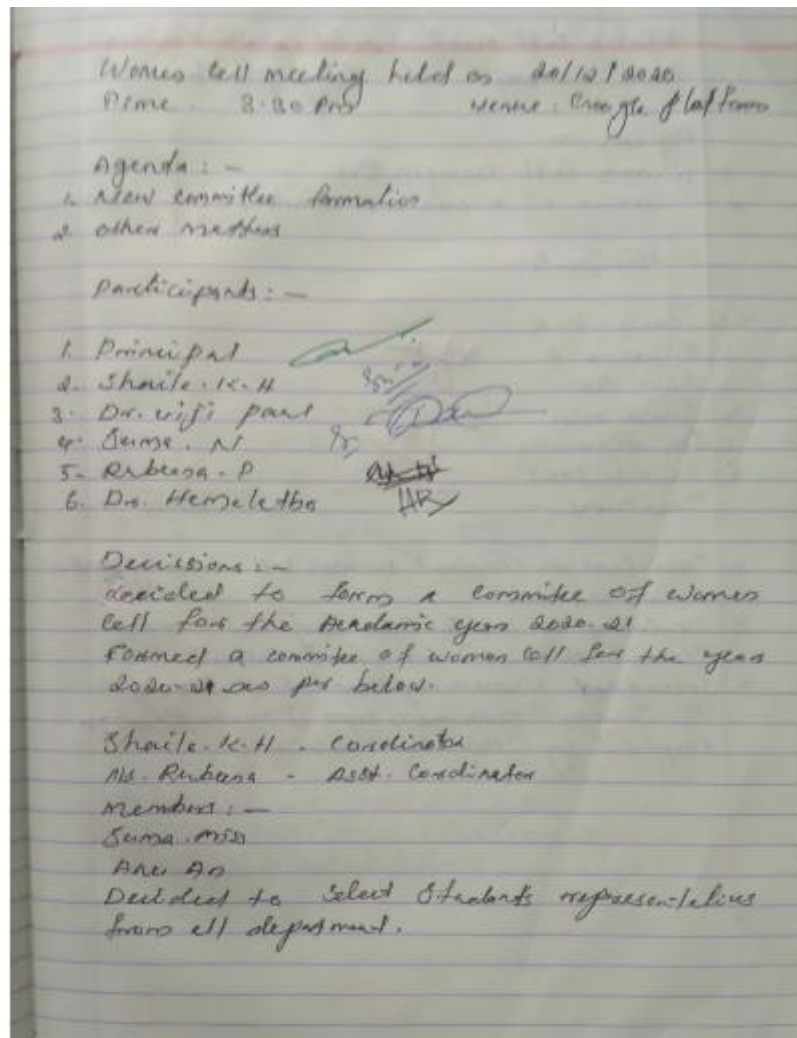 Women Cell meeting held on 20/12/2020
Time. 3.30 Pm Venue: Google platform
Agenda: -
1. New committee formation
2. other matters
Participants: -
1. Principal
2. Shaila. K. H
3. Dr. Viji Paul
4. Suma. N
5. Rubeena. P
6. Dr. Hemalatha HR
Decissions: -
decided to form a commitee of women
Cell for the Acadamic year 2020-21
Formed a commitee of women Cell for the year
2020-21 as per below.
Shaila. K. H - Coordinator
Rubeena - Asst. Coordinator
Members: -
Suma. Miss
Decided to select Students representatives
from all department.